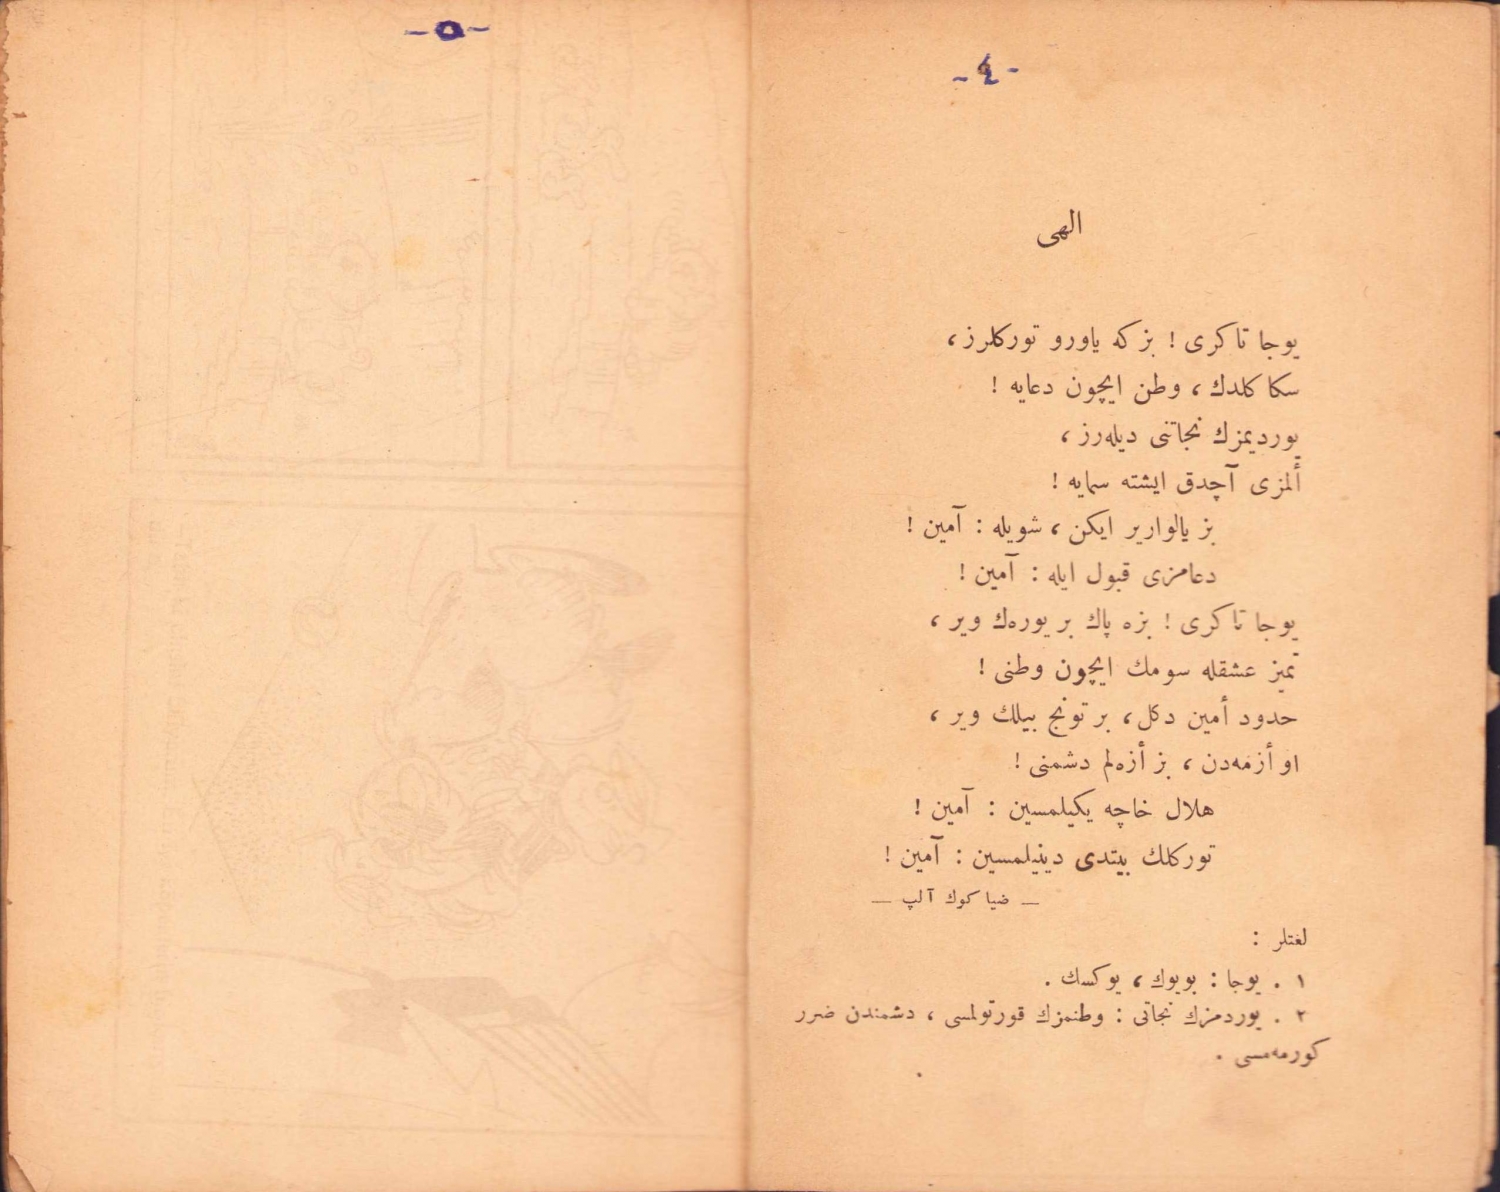 -٤-
الهی
یوجا تاكری ! بزكه یاورو توركلرز ،
سكا كلدك ، وطن ایچون دعایه !
یوردیمزك نجاتنی دیله‌رز ،
أُلمزی آچدق ایشته سمایه !
بز یالواریر ایكن ، شویله : آمین !
دعامزی قبول ایله : آمین !
یوجا تاكری ! بزه پاك بر یوره‌ك ویر ،
تمیز عشقله سومك ایچون وطنی !
حدود أمین دكل ، بر تونج بیلك ویر ،
او أزمه‌دن ، بز أزه‌لم دشمنی !
هلال خاچه یكیلمسین : آمین !
توركلك بیتدی دینیلمسین : آمین !
— ضیا كوك آلپ —
لغتلر :
١ . یوجا : بویوك ، یوكسك .
٢ . یوردمزك نجاتی : وطنمزك قورتولمسی ، دشمندن ضرر
كورمه‌مسی .
-٥-